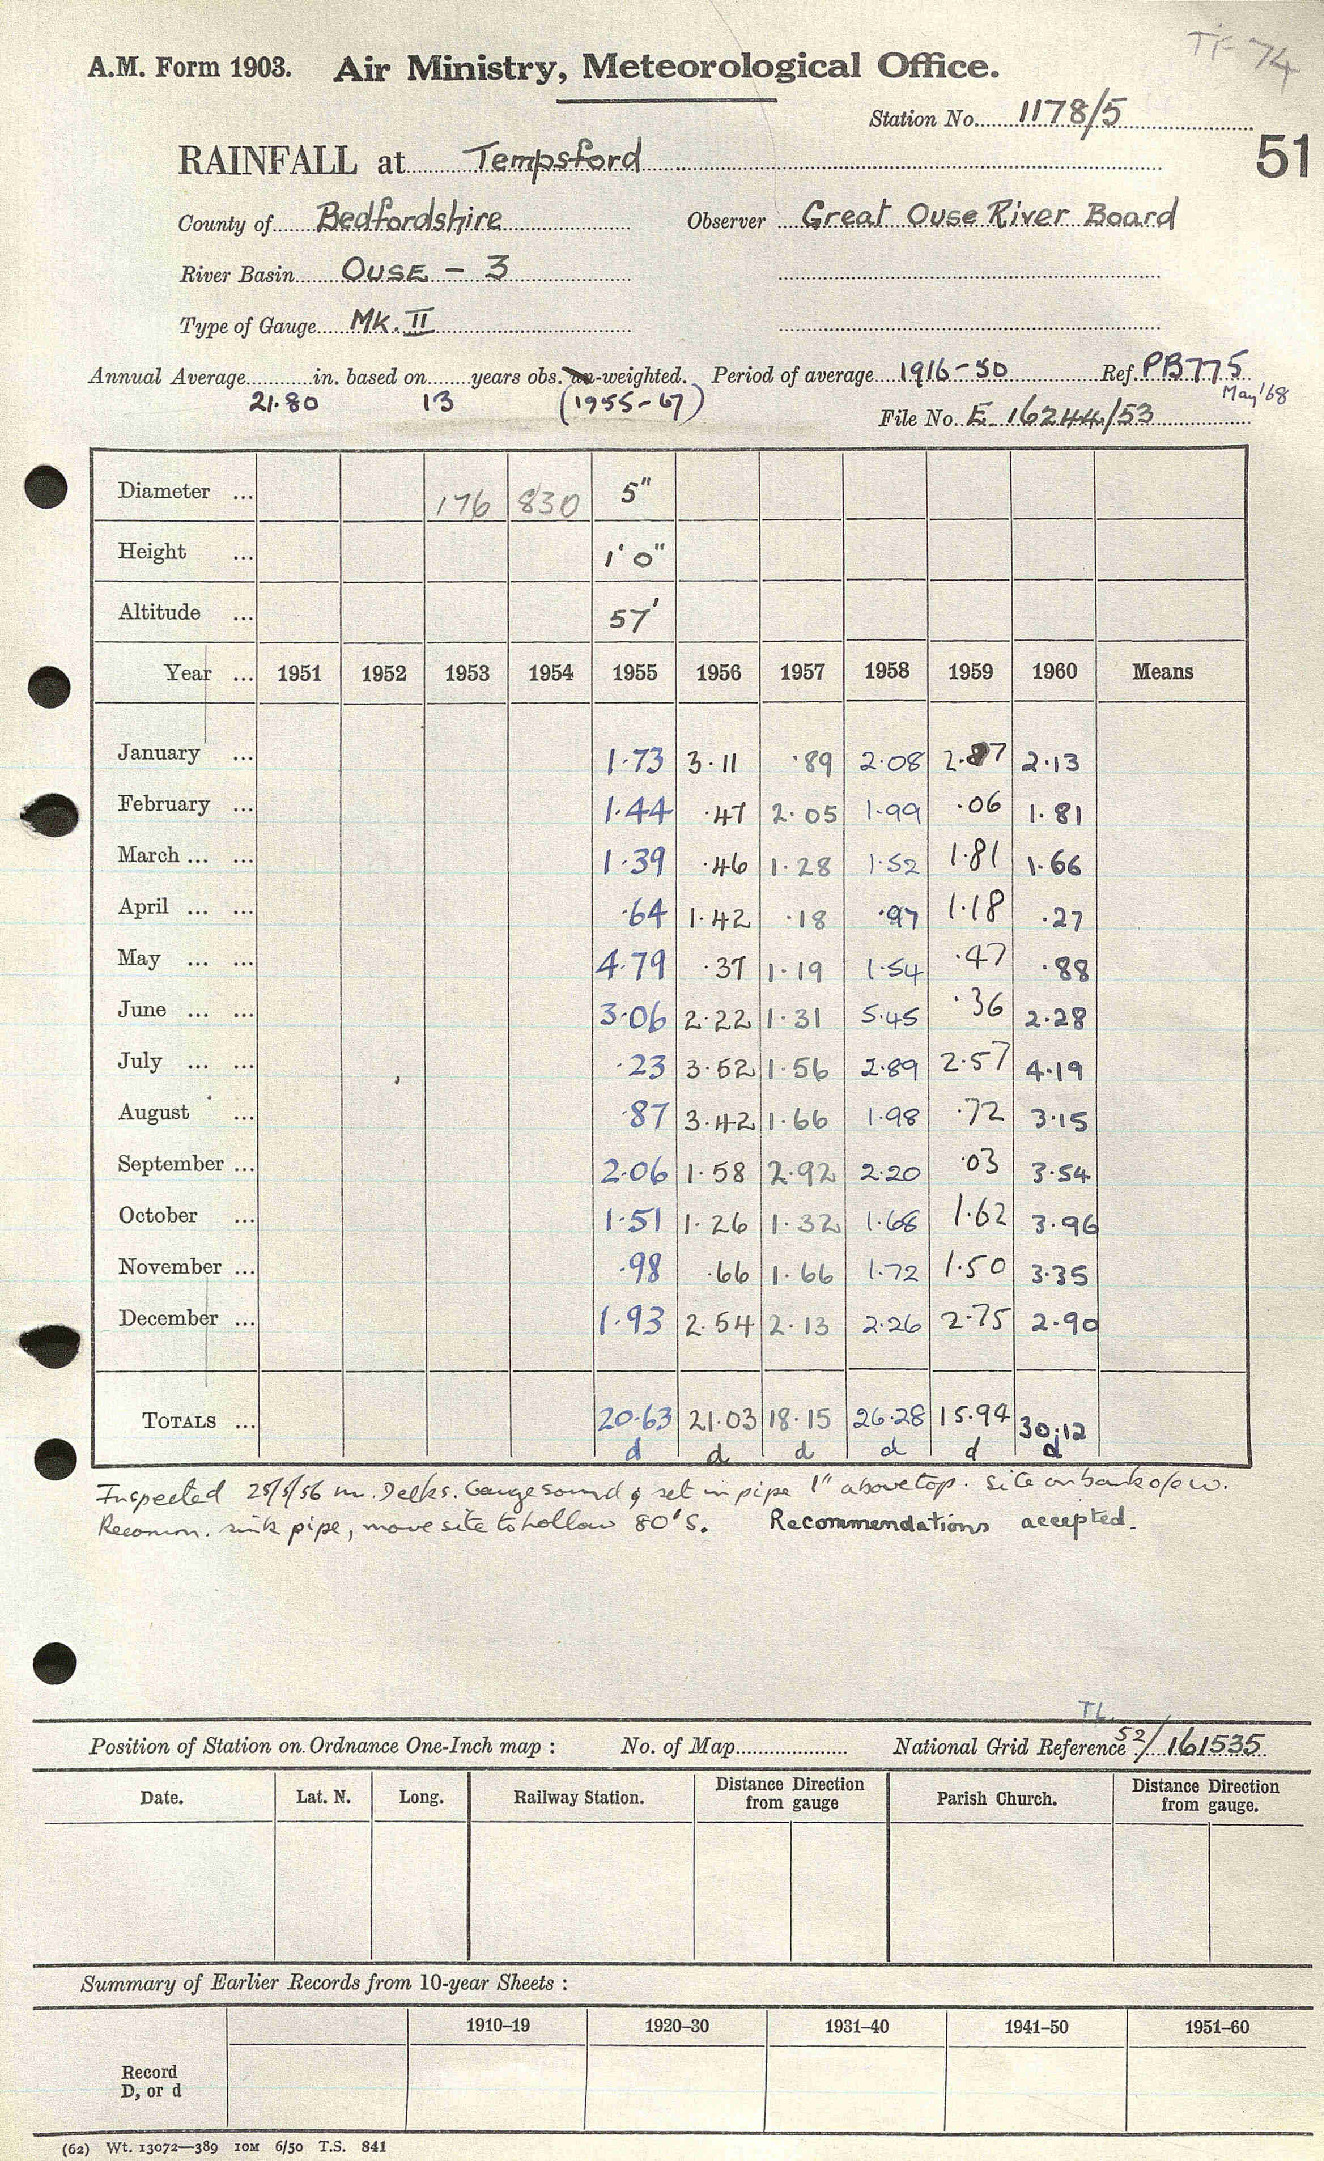 TF 74
A.M. Form 1903. Air Ministry, Meteorological Office.
Station No. 1178/5
51
RAINFALL at Tempsford
County of Bedfordshire Observer Great Ouse River Board
River Basin OUSE - 3
Type of Gauge Mk. II
Annual Average in. based on years obs. un-weighted. Period of average 1916-50 Ref. PB775
21.80 13 (1955-67) May '68
File No. E 16244/53
Diameter ... 176 830 5"
Height ... 1' 0"
Altitude ... 57'
Year ... 1951 1952 1953 1954 1955 1956 1957 1958 1959 1960 Means
January ... 1.73 3.11 .89 2.08 2.87 2.13
February ... 1.44 .47 2.05 1.99 .06 1.81
March ... ... 1.39 .46 1.28 1.52 1.81 1.66
April ... ... .64 1.42 .18 .97 1.18 .27
May ... ... 4.79 .37 1.19 1.54 .47 .88
June ... ... 3.06 2.22 1.31 5.45 .36 2.28
July ... ... .23 3.52 1.56 2.89 2.57 4.19
August ... .87 3.42 1.66 1.98 .72 3.15
September ... 2.06 1.58 2.92 2.20 .03 3.54
October ... 1.51 1.26 1.32 1.68 1.62 3.96
November ... .98 .66 1.66 1.72 1.50 3.35
December ... 1.93 2.54 2.13 2.26 2.75 2.90
TOTALS ... 20.63 21.03 18.15 26.28 15.94 30.12
d d d d d d
Inspected 25/5/56 Mr. Gauge sound & set in pipe 1" above top. Site on bank
Recomm. sink pipe, move site to hollow 80' S. Recommendations accepted.
TL
Position of Station on Ordnance One-Inch map : No. of Map National Grid Reference 52/161535
Date. Lat. N. Long. Railway Station. Distance Direction from gauge Parish Church. Distance Direction from gauge.
Summary of Earlier Records from 10-year Sheets :
1910–19 1920–30 1931–40 1941–50 1951–60
Record
D, or d
(62) Wt. 13072—389 10M 6/50 T.S. 841